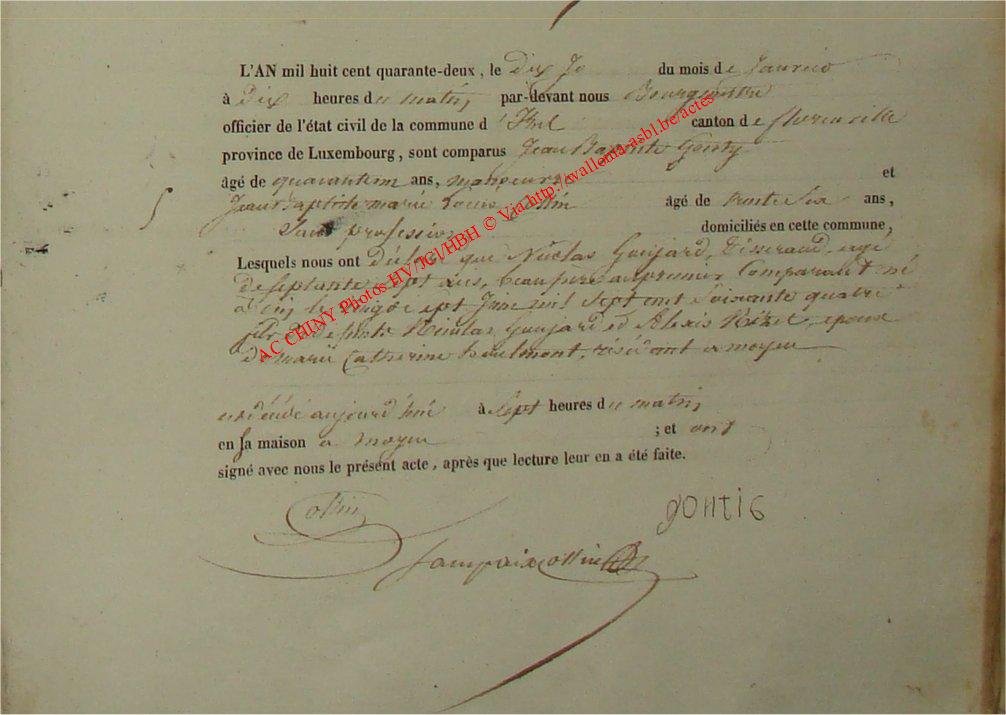 L'AN mil huit cent quarante-deux, le Dix du mois de Janvier
à Dix heures du matin, par-devant nous Bourgmestre
officier de l'état civil de la commune d'Izel canton de florenville
province de Luxembourg, sont comparus Jean Baptiste
âgé de ans, et
Jean Baptiste marie Louis Collin âgé de trente six ans,
Sans profession domiciliés en cette commune,
Lesquels nous ont déclaré que Nicolas Goujard, Tisserand, agé
de septante sept ans, beau pere au premier Comparant né
à le vingt sept Juin mil Sept cent Soixante quatre
fils de Nicolas Goujard et Alexis époux
de marie Catherine résidant a moyen
est décédé aujourd'hui à sept heures du matin,
en sa maison a moyen ; et ont
signé avec nous le présent acte, après que lecture leur en a été faite.
Collin
gontis
Lampaix Collin
AC CHINY Photos HV/JCJ/HBH © Via http://wallonia-asbl.be/actes